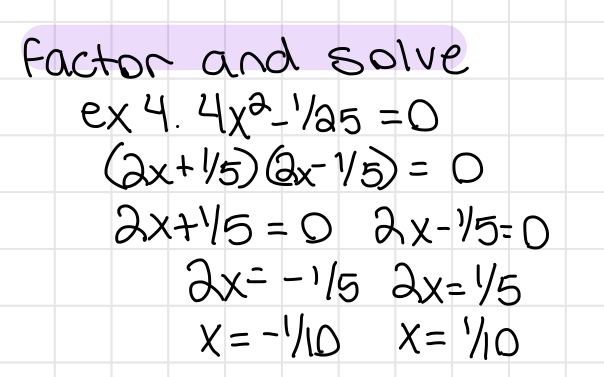 factor and solve
ex 4. 4x²-1/25 = 0
(2x+1/5)(2x-1/5) = 0
2x+1/5 = 0 2x-1/5=0
2x= -1/5 2x= 1/5
x= -1/10 x= 1/10